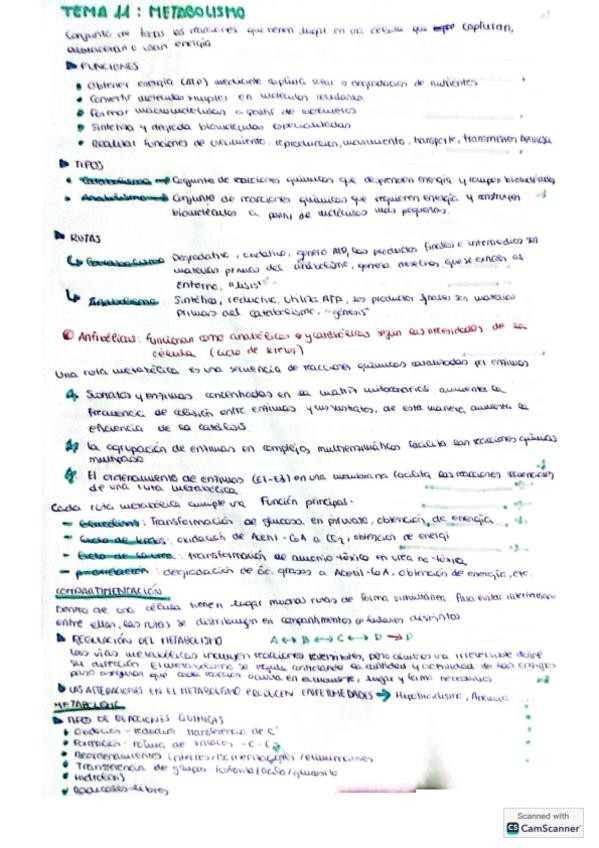 TEMA 11: METABOLISMO
Conjunto de todas las reacciones que tienen lugar en una célula que capturan,
almacenan o usan energía
FUNCIONES
Obtener energía (ATP) mediante captura solar o degradación de nutrientes
Convertir moléculas simples en moléculas celulares
Formar macromoléculas a partir de
Sintetiza y degrada biomoléculas especializadas
Realizar funciones de crecimiento, reproducción, movimiento, transporte, transmisión
TIPOS
Catabolismo → Conjunto de reacciones químicas que desprenden energía y rompen biomoléculas
Anabolismo → Conjunto de reacciones químicas que requieren energía y construyen
biomoléculas a partir de moléculas más pequeñas.
RUTAS
Catabolismo Degradativa, oxidativa, genera ATP, los productos finales e intermedios son
materias primas del anabolismo, genera desechos que se excretan al
entorno, "lisis"
Anabolismo: Sintética, reductiva, utiliza ATP, los productos finales son materias
primas del catabolismo, "génesis"
Anfibólicas: funcionan como anabólicas y catabólicas según las necesidades de la
célula (ciclo de krebs)
Una ruta metabólica es una secuencia de reacciones químicas catalizadas por enzimas
Sustratos y enzimas concentrados en la matriz mitocondrial aumenta la
frecuencia de colisión entre enzimas y sus sustratos, de esta manera aumenta la
eficiencia de la catálisis
La agrupación de enzimas en complejos multienzimáticos facilita las reacciones químicas
multipaso
El ordenamiento de enzimas (E1-E3) en una membrana facilita las reacciones secuenciales
de una ruta metabólica
Cada ruta metabólica cumple una función principal:
- Glucólisis: Transformación de glucosa en piruvato, obtención de energía
- Ciclo de krebs: oxidación de Acetil-CoA a CO2, obtención de energí
- Ciclo de la urea: transformación de amonio tóxico en urea no tóxica
- β-oxidación: degradación de ác. grasos a Acetil-CoA, obtención de energía, etc.
COMPARTIMENTACIÓN
Dentro de una célula tienen lugar muchas rutas de forma simultánea. Para evitar interferencias
entre ellas, las rutas se distribuyen en compartimentos celulares distintos
REGULACIÓN DEL METABOLISMO A ↔ B ↔ C ↔ D → P
Las vías metabólicas incluyen reacciones reversibles, pero alguna irreversible define
su dirección. El metabolismo se regula controlando la cantidad y actividad de las enzimas
para asegurar que cada reacción ocurra en el momento, lugar y forma necesarios
LAS ALTERACIONES EN EL METABOLISMO PRODUCEN ENFERMEDADES →
METABOLISMO
TIPO DE REACCIONES QUÍMICAS
Oxidación-reducción transferencia de e-
Formación-rotura de enlaces -C-C
Reordenamientos internos/isomerizaciones/eliminaciones
Transferencia de grupos
Hidrólisis
Radicales libres
Scanned with
CS CamScanner